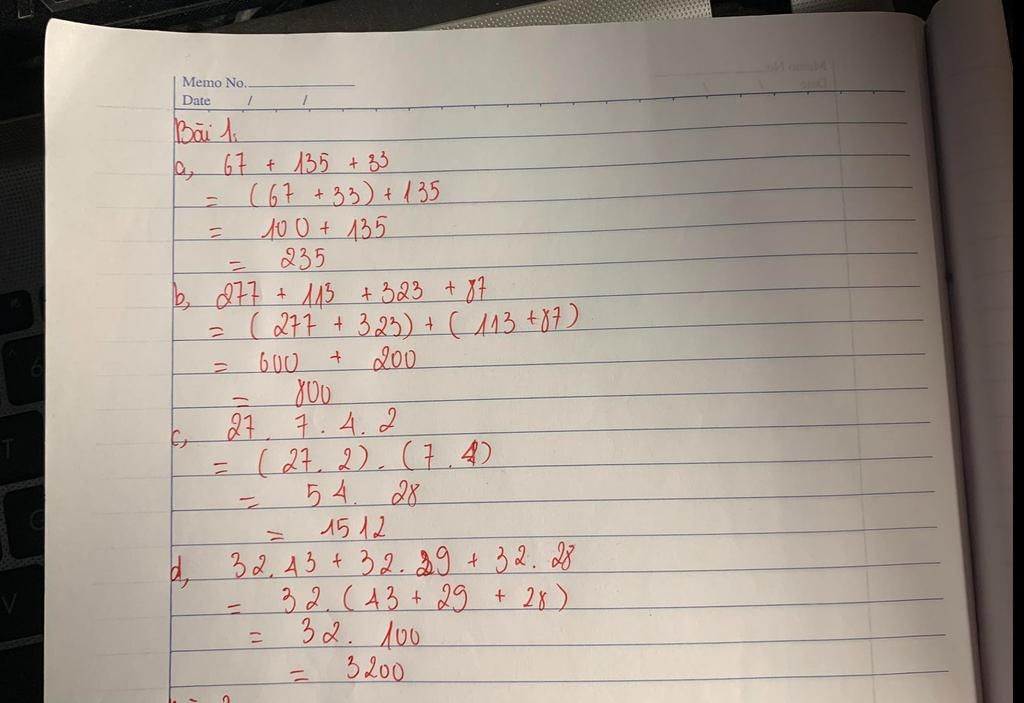 Memo No.
Date / /
Bài 1.
a, 67 + 135 + 33
= (67 + 33) + 135
= 100 + 135
= 235
b, 277 + 113 + 323 + 87
= (277 + 323) + (113 + 87)
= 600 + 200
= 800
c, 27. 7. 4. 2
= (27. 2). (7. 4)
= 54. 28
= 1512
d, 32.43 + 32. 29 + 32. 28
= 32. (43 + 29 + 28)
= 32. 100
= 3200